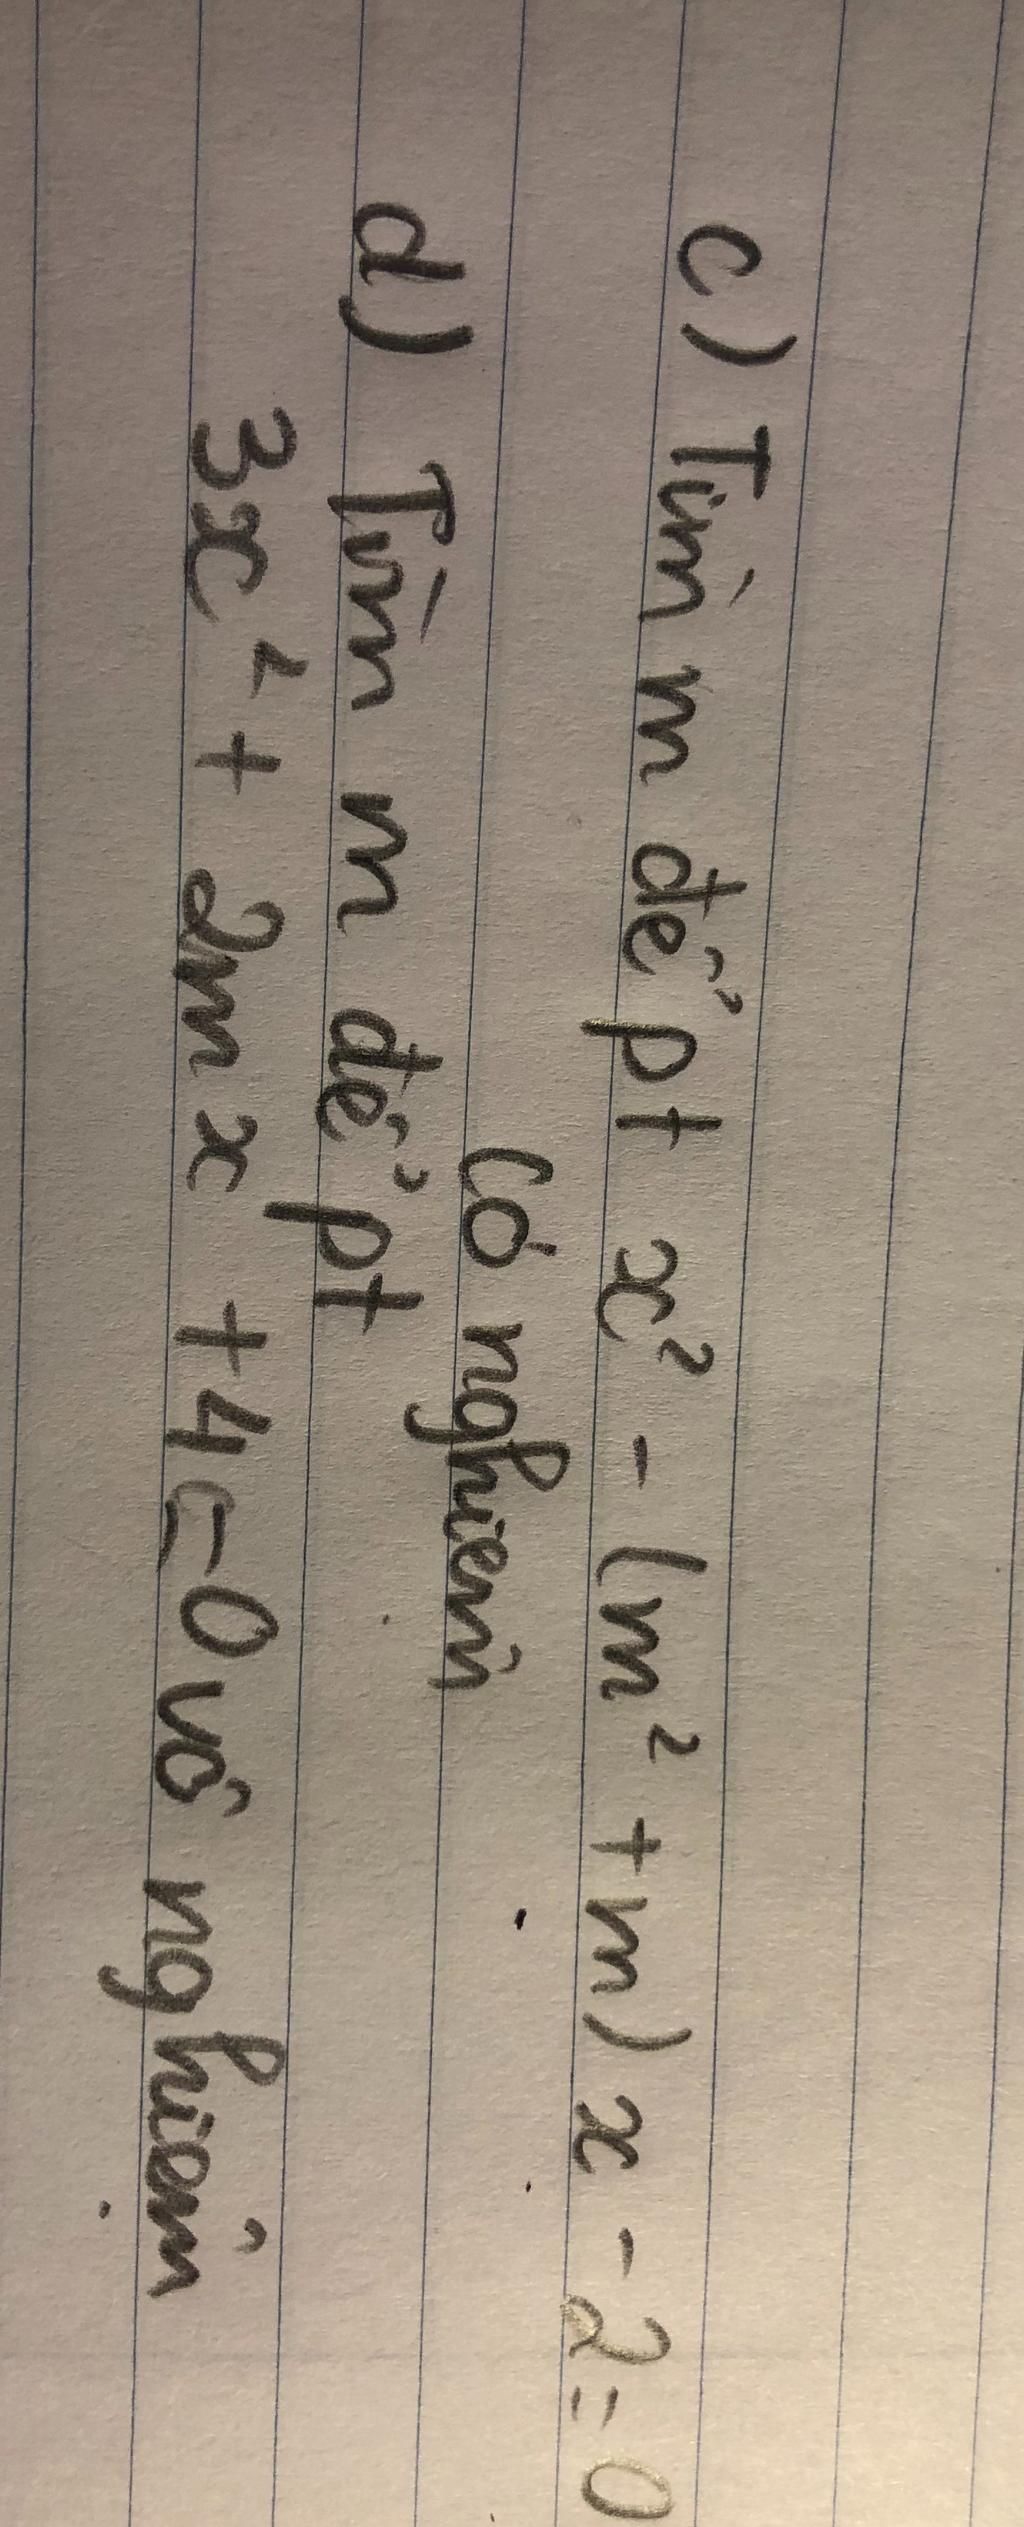 c) Tìm m để pt x² - (m² + m) x - 2 = 0
có nghiệm
d) Tìm m để pt
3x² + 2mx + 4 = 0 vô nghiệm